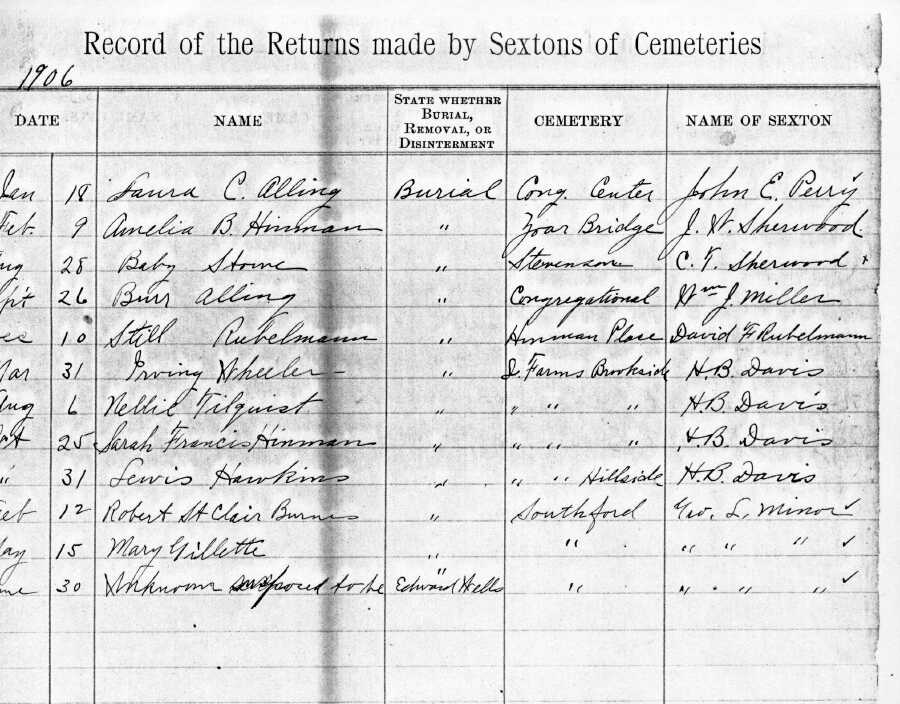 Record of the Returns made by Sextons of Cemeteries
1906
DATE NAME STATE WHETHER BURIAL, REMOVAL, OR DISINTERMENT CEMETERY NAME OF SEXTON
Jan 18 Laura C. Alling Burial Cong. Center John E. Perry
Feb. 9 Amelia B. Hinman " Zoar Bridge J. W. Sherwood
ug 28 Baby Stowe " Stevenson C. T. Sherwood
pt 26 Burr Alling " Congregational Wm J. Miller
ec 10 Still Rubelmann " Hinman Place David F Rubelmann
Mar 31 Irving Wheeler " Farms Brookside H. B. Davis
Aug 6 Nellie Tilquist " " " " H B Davis
25 Sarah Francis Hinman " " " " H.B. Davis
" 31 Lewis Hawkins " " " Hillside H.B. Davis
12 Robert St Clair Burnes " Southford Geo. L. Minor ✓
ay 15 Mary Gillette " " " " " ✓
ne 30 Unknown supposed to be Edward Wells " " " " " ✓